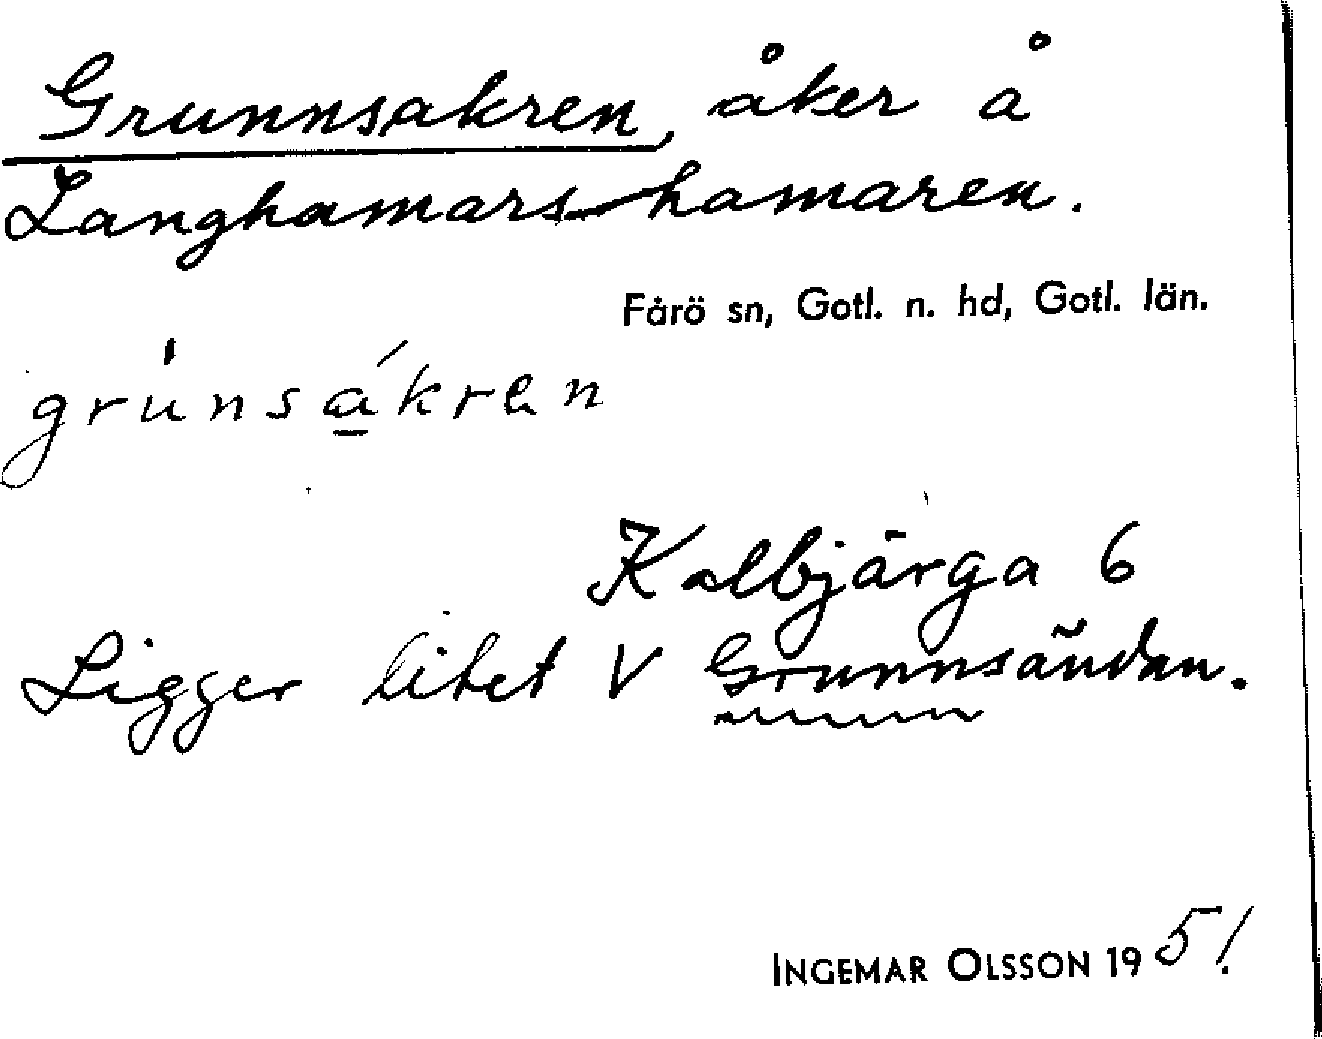 Grunnsakren, åker å
Langhamars-hamaren.
Fårö sn, Gotl. n. hd, Gotl. län.
grùnsákrən
Kalbjärga 6
Ligger litet V Grunnsändan.
INGEMAR OLSSON 1951